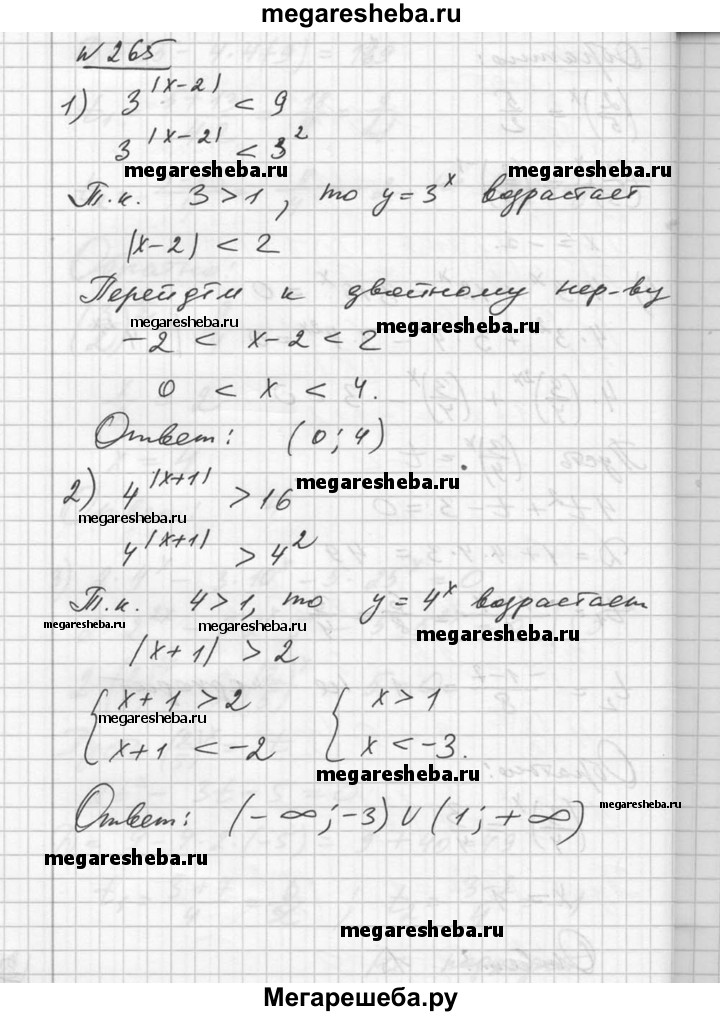 megaresheba.ru
№265
1) 3^|x-2| < 9
3^|x-2| < 3^2
megaresheba.ru megaresheba.ru
Т.к. 3>1, то y=3^x возрастает
|x-2| < 2
Перейдём к двойному нер-ву
megaresheba.ru megaresheba.ru
-2 < x-2 < 2
0 < x < 4.
Ответ: (0; 4)
2) 4^|x+1| > 16 megaresheba.ru
megaresheba.ru
4^|x+1| > 4^2
Т.к. 4>1, то y=4^x возрастает
megaresheba.ru megaresheba.ru megaresheba.ru
|x+1| > 2
{x+1 > 2 {x > 1
megaresheba.ru
{x+1 < -2 {x < -3.
megaresheba.ru
Ответ: (-∞; -3) ∪ (1; +∞) megaresheba.ru
megaresheba.ru
megaresheba.ru
Мегарешеба.ру